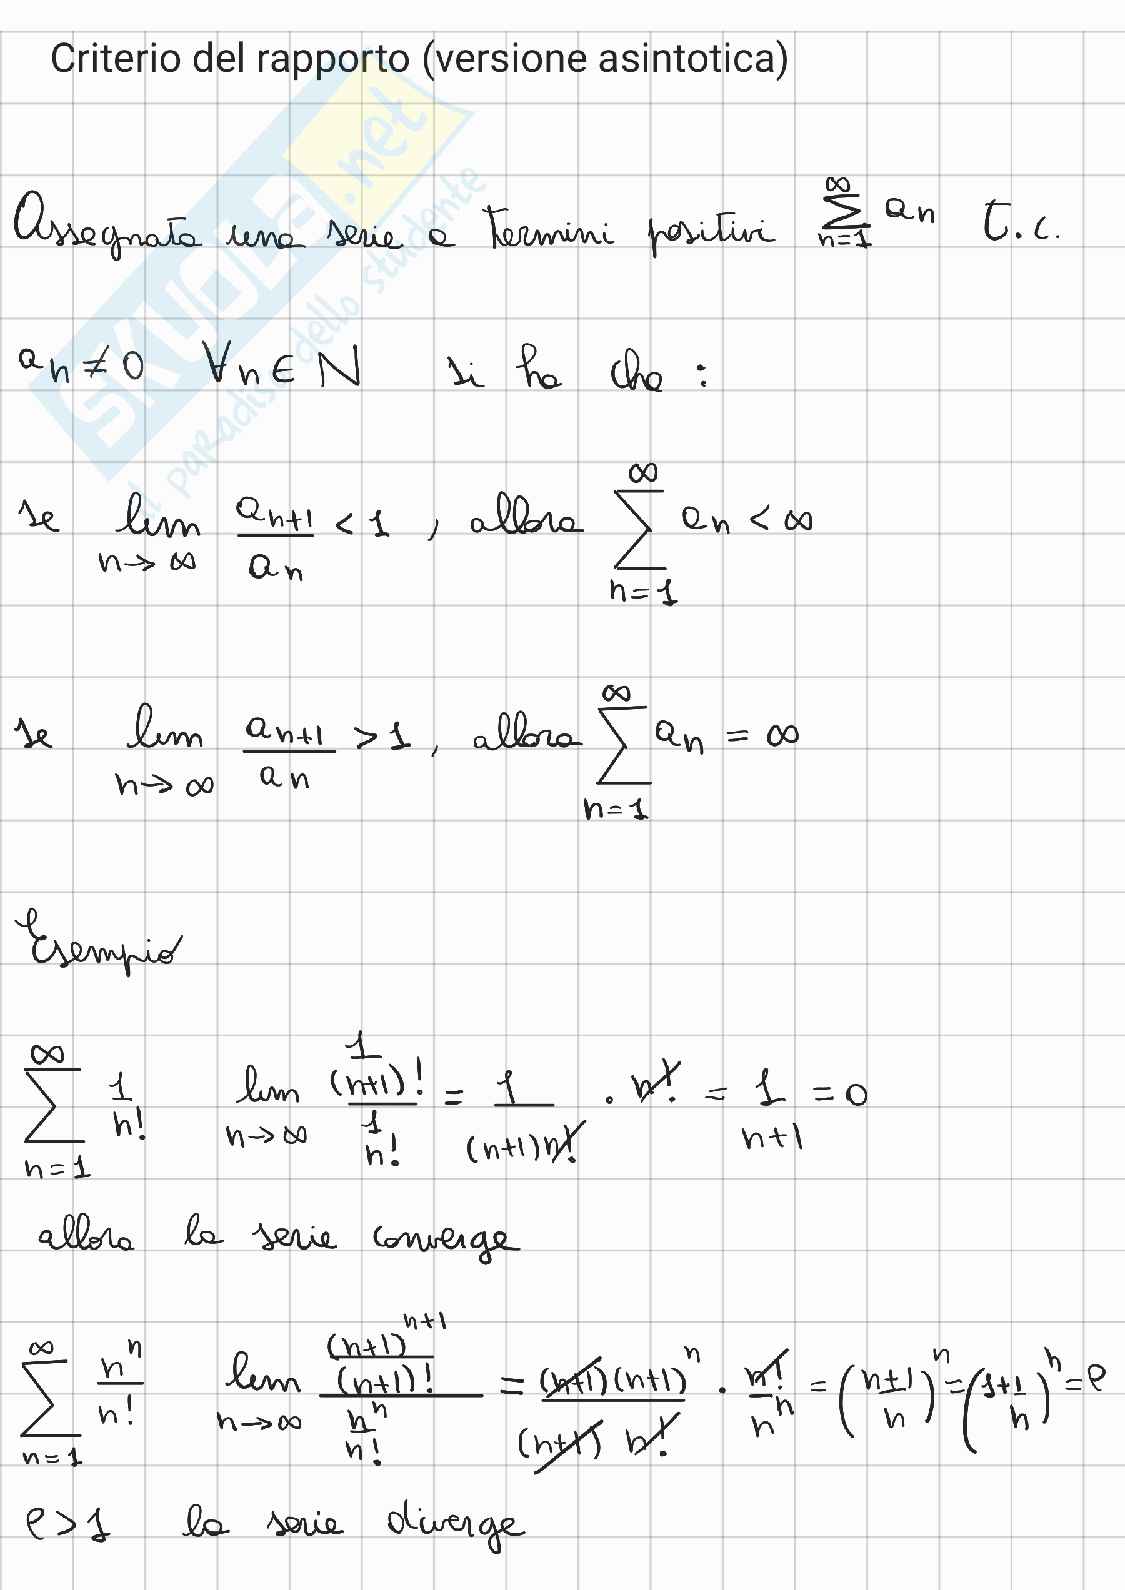 Criterio del rapporto (versione asintotica)
Assegnata una serie a termini positivi ∑_{n=1}^{∞} a_n t.c.
a_n ≠ 0 ∀n ∈ N si ha che :
se lim_{n→∞} a_{n+1}/a_n < 1 , allora ∑_{n=1}^{∞} a_n < ∞
se lim_{n→∞} a_{n+1}/a_n > 1 , allora ∑_{n=1}^{∞} a_n = ∞
Esempio
∑_{n=1}^{∞} 1/n! lim_{n→∞} (1/(n+1)!)/(1/n!) = 1/((n+1)n!) · n! = 1/(n+1) = 0
allora la serie converge
∑_{n=1}^{∞} n^n/n! lim_{n→∞} ((n+1)^{n+1}/(n+1)!)/(n^n/n!) = ((n+1)(n+1)^n)/((n+1) n!) · n!/n^n = ((n+1)/n)^n = (1+1/n)^n = e
e > 1 la serie diverge
SKUOLA.net
il paradiso dello studente